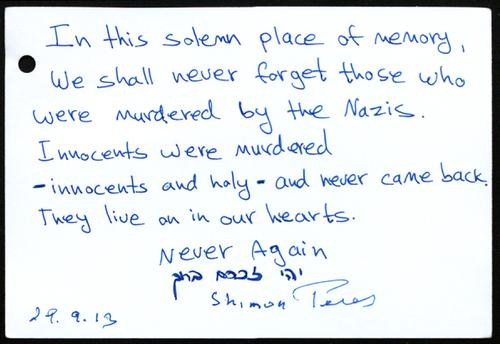 In this solemn place of memory,
We shall never forget those who
were murdered by the Nazis.
Innocents were murdered
-innocents and holy - and never came back.
They live on in our hearts.
Never Again
יהי זכרם ברוך
Shimon Peres
29.9.13